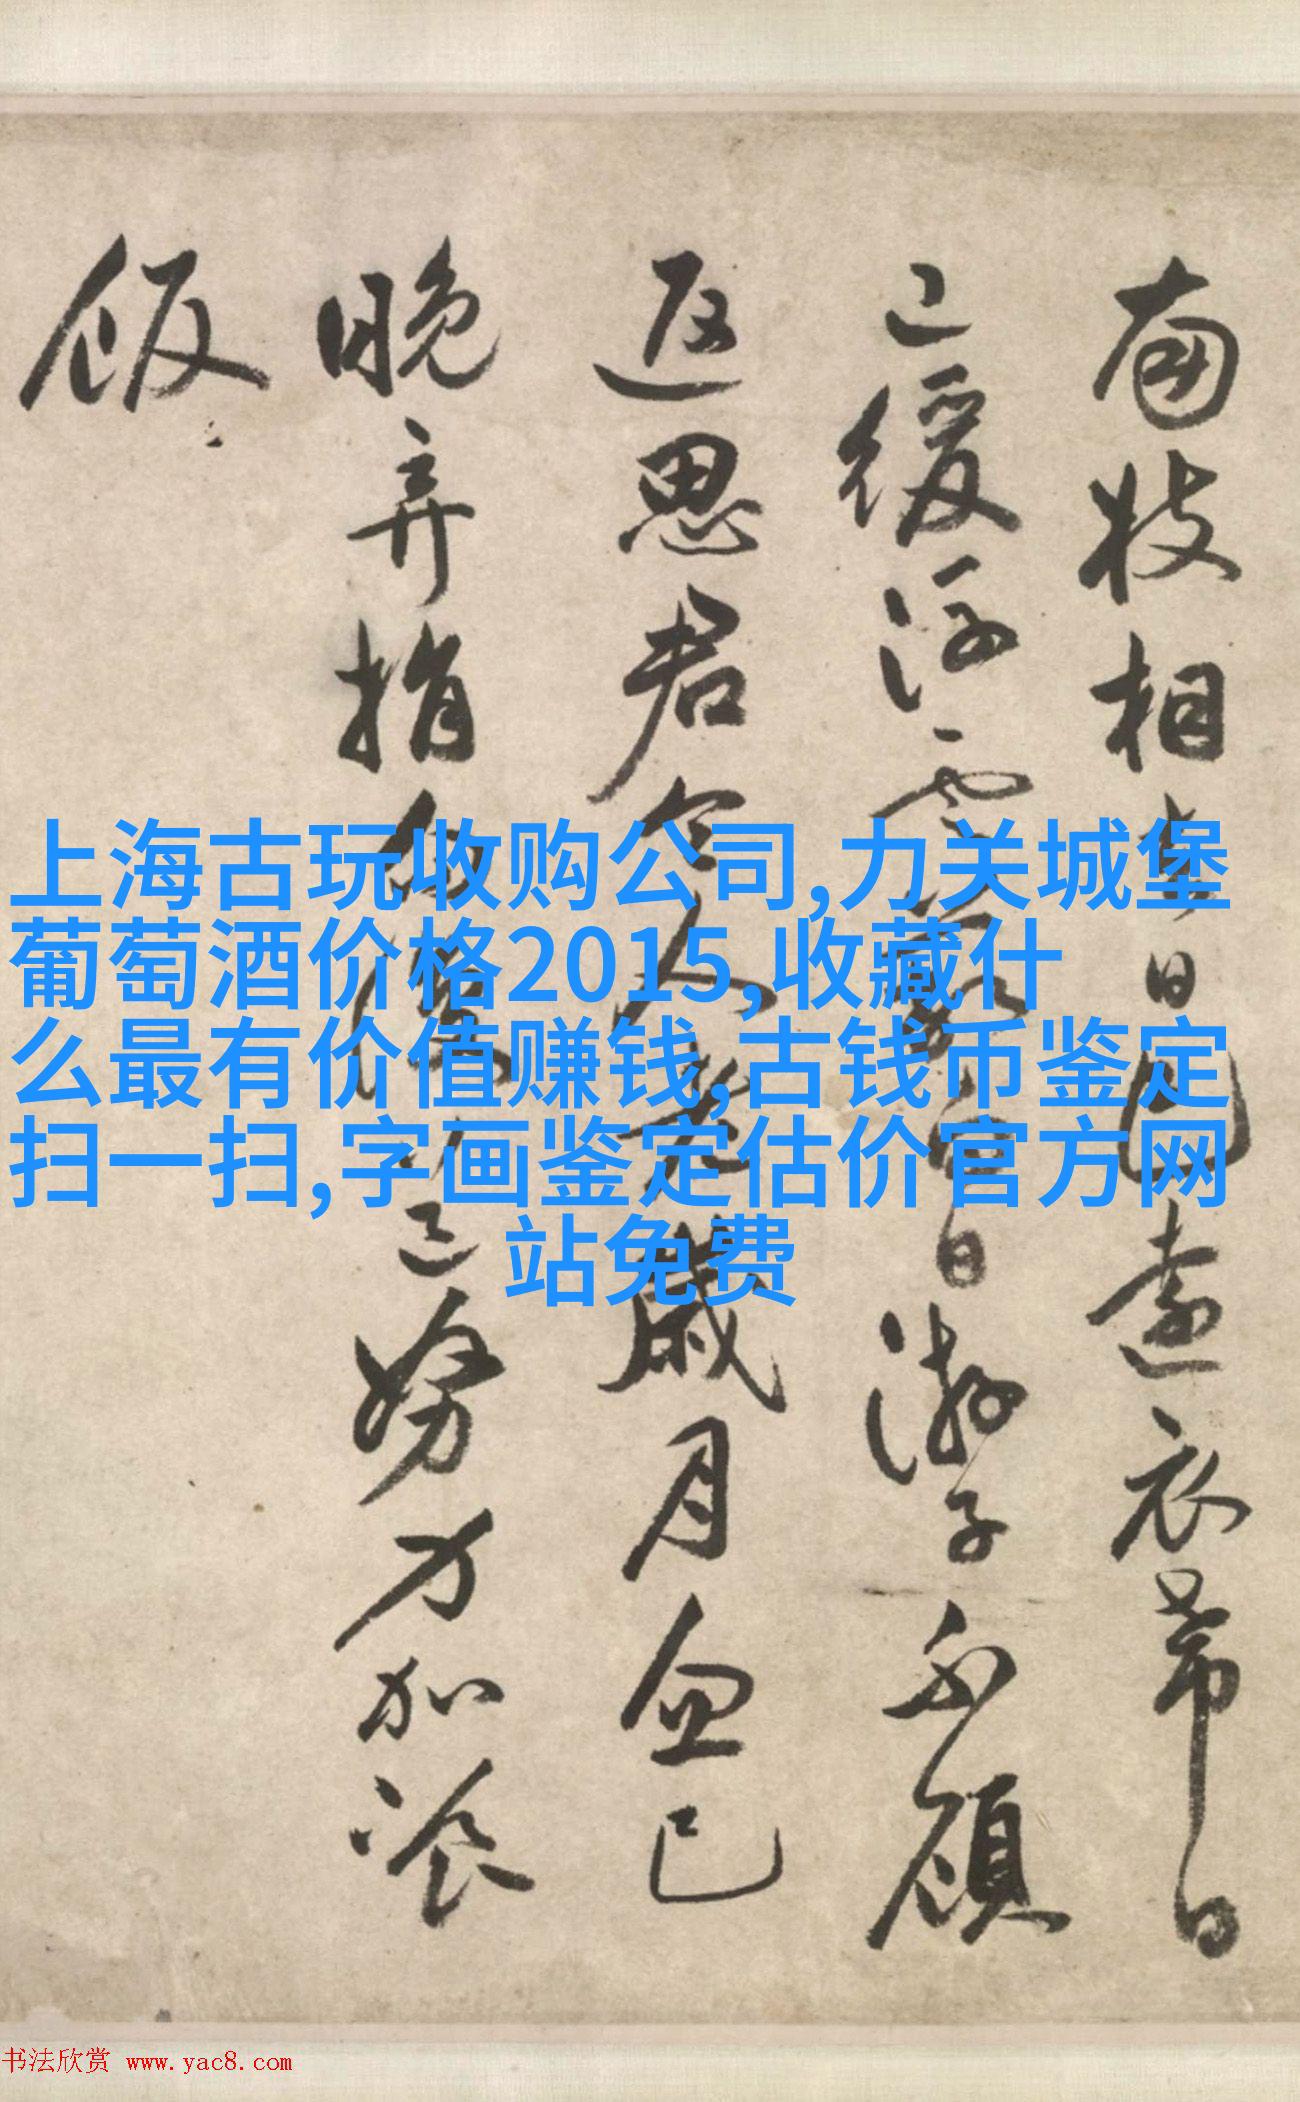 上海古玩收购公司,力关城堡
葡萄酒价格2015,收藏什
么最有价值赚钱,古钱币鉴定
扫一扫,字画鉴定估价官方网
站免费
南枝相去日已遠衣帶日
已緩浮雲蔽白日游子不顧
返思君令人老歲月忽已
晚弃捐勿復道努力加飡
飯
书法欣赏 www.yac8.com